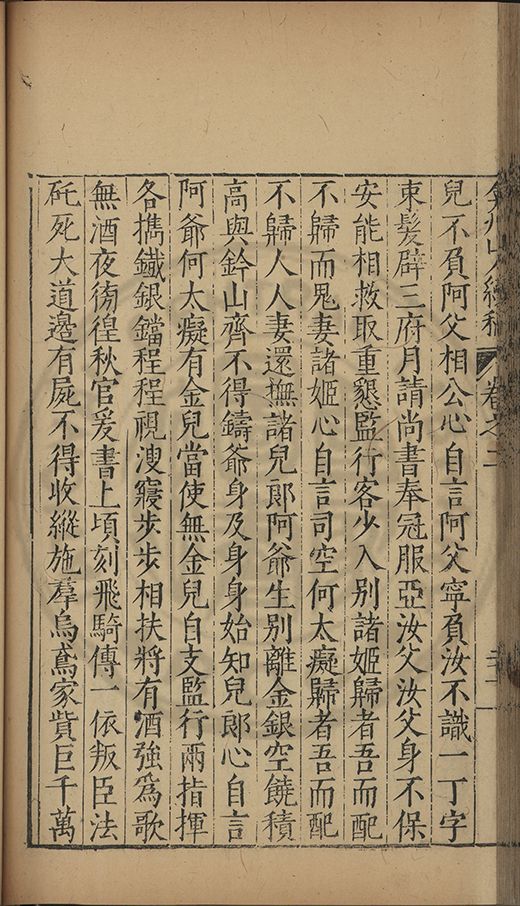 弇州山人續稿 卷之二
兒不負阿父相公心自言阿父寧負汝不識一丁字
束髮辟三府月請尚書奉冠服亞汝父汝父身不保
安能相救取重懇監行客少入別諸姬歸者吾而配
不歸而鬼妻諸姬心自言司空何太癡歸者吾而配
不歸人人妻還撫諸兒郎阿爺生別離金銀空饒積
高與鈐山齊不得鑄爺身及身身始知兒郎心自言
阿爺何太癡有金兒當使無金兒自支監行兩指揮
各擕鐵銀鐺程程視溲寢步步相扶將有酒強為歌
無酒夜徬徨秋官爰書上頃刻飛騎傳一依叛臣法
矺死大道邊有屍不得收縱施羣烏鳶家貲巨千萬